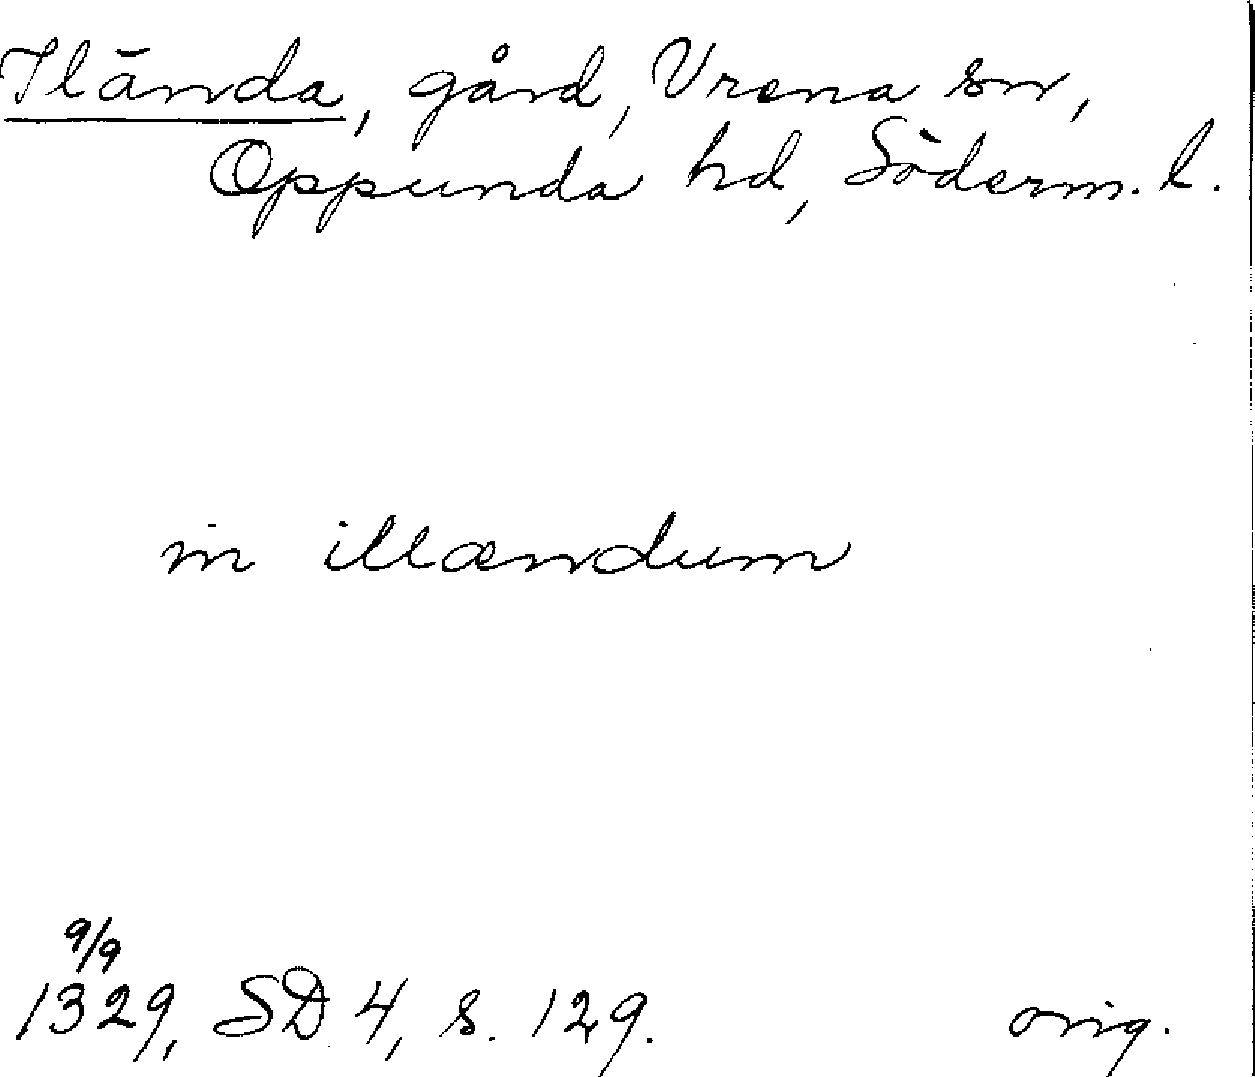 Ilända, gård, Vrena sn,
Oppunda hd, Söderm. l.
in illændum
9/9
1329, SD 4, s. 129. orig.